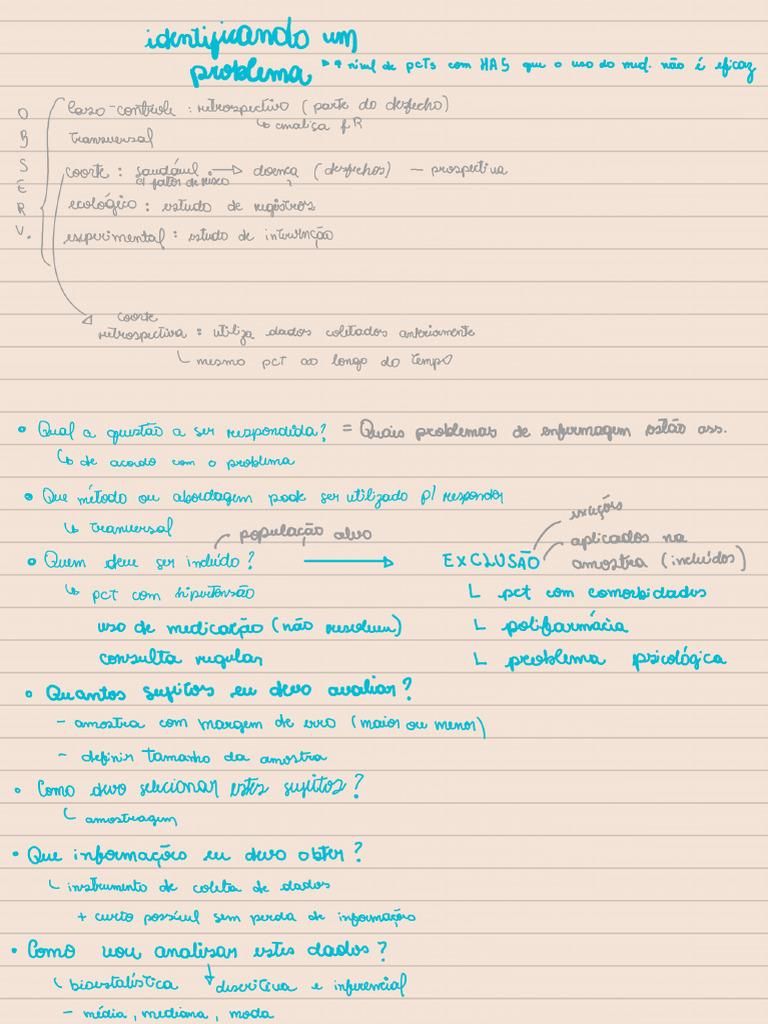 identificando um
problema
↳ + nível de pcts com HAS que o uso do med. não é eficaz
OBSERV.
caso-controle : retrospectivo (parte do desfecho)
↳ analisa fR
transversal
coorte : saudável → doença (desfechos) — prospectiva
c/ fator de risco ?
ecológico : estudo de registros
experimental : estudo de intervenção
coorte
retrospectiva : utiliza dados coletados anteriormente
└ mesmo pct ao longo do tempo
• Qual a questão a ser respondida? = Quais problemas de enfermagem estão ass.
↳ de acordo com o problema
• Que método ou abordagem pode ser utilizado p/ responder
↳ tranversal
população alvo
• Quem deve ser incluído? → EXCLUSÃO
exceções
aplicados na
amostra (incluídos)
↳ pct com hipertensão
└ pct com comorbidades
uso de medicação (não resolveu)
└ polifarmácia
consulta regular
└ problema psicológica
• Quantos sujeitos eu devo avaliar?
- amostra com margem de erro (maior ou menor)
- definir tamanho da amostra
• Como devo selecionar estes sujeitos?
└ amostragem
• Que informações eu devo obter?
└ instrumento de coleta de dados
+ curto possível sem perda de informações
• Como vou analisar estes dados?
└ bioestatística ↓ descritiva e inferencial
- média, mediana, moda